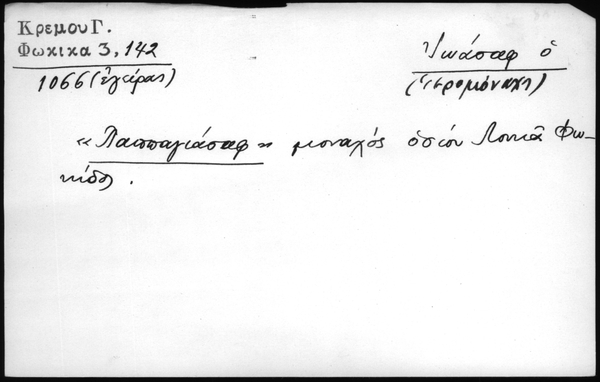 Κρεμου Γ.
Φωκικα 3, 142
1066 (ἐγκύρας)
Ἰωάσαφ ὁ
(ἱερομόναχος)
«Παππαγιάσαφ» μοναχός ὁσίου Λουκᾶ Φω-
κίδος.